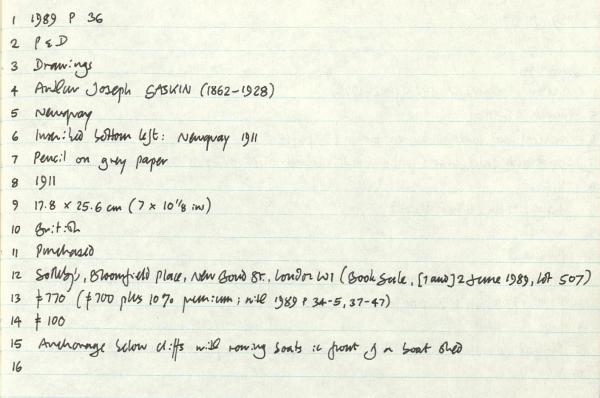 1 1989 P 36
2 P & D
3 Drawings
4 Arthur Joseph GASKIN (1862-1928)
5 Newquay
6 Inscribed bottom left: Newquay 1911
7 Pencil on grey paper
8 1911
9 17.8 x 25.6 cm (7 x 10 1/8 in)
10 British
11 Purchased
12 Sotheby's, Bloomfield Place, New Bond St., London W1 (Book Sale, [1 and] 2 June 1989, lot 507)
13 £770 (£700 plus 10% premium; with 1989 P 34-5, 37-47)
14 £100
15 Anchorage below cliffs with rowing boats in front of a boat shed
16